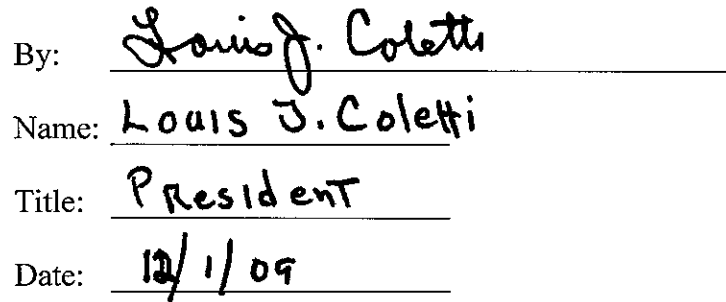 By: Louis J. Coletti
Name: Louis J. Coletti
Title: President
Date: 12/1/09